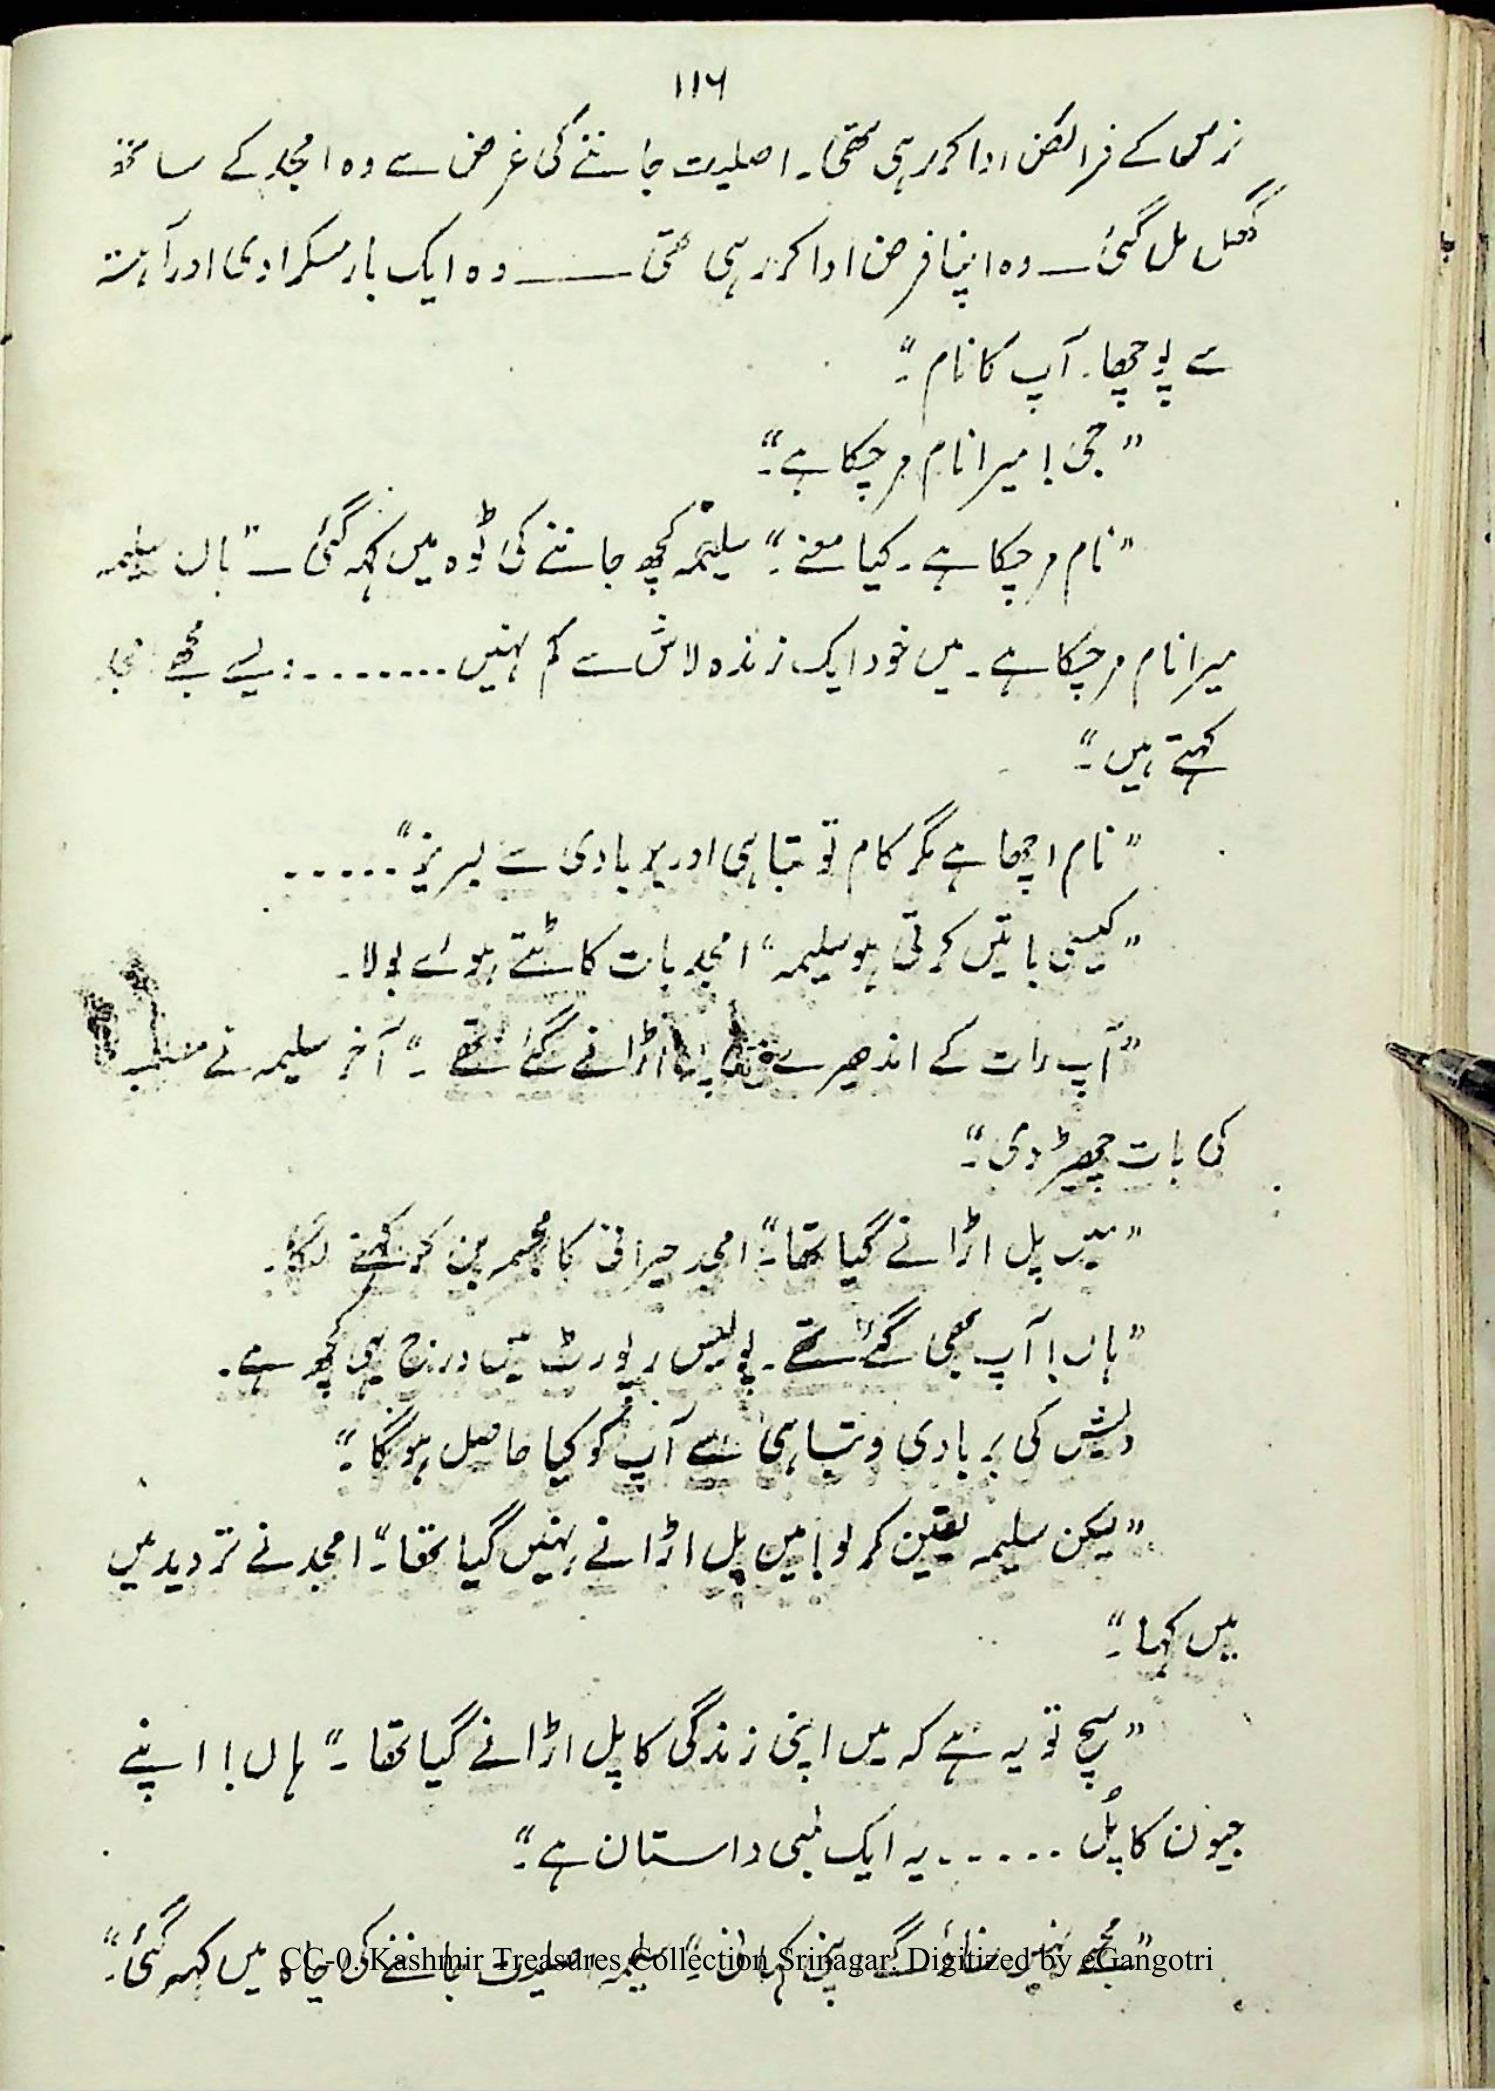 ۱۱۶
نرس کے فرائض ادا کر رہی تھی۔ اصلیت جاننے کی غرض سے وہ امجد کے ساتھ
گھل مل گئی ــ وہ اپنا فرض ادا کر رہی تھی ــــــ وہ ایک بار مسکرا دی اور آہستہ
سے پوچھا۔ آپ کا نام ۔"
"جی! میرا نام مر چکا ہے۔"
"نام مر چکا ہے۔ کیا معنے۔" سلیمہ کچھ جاننے کی ٹوہ میں کہہ گئی ــ "ہاں سلیمہ
میرا نام مر چکا ہے۔ میں خود ایک زندہ لاش سے کم نہیں ........ مجھے
کہتے ہیں۔"
"نام اچھا ہے مگر کام تو تباہی اور بربادی سے لبریز" .....
"کیسی باتیں کرتی ہو سلیمہ" امجد بات کاٹتے ہوئے بولا۔
"آپ رات کے اندھیرے اڑانے گئے تھے ۔" آخر سلیمہ نے
کی بات چھیڑ دی۔"
"میں پل اڑانے گیا تھا۔" امجد حیرانی کا مجسمہ بن کر کہنے لگا۔
"ہاں! آپ بھی گئے تھے۔ پولیس رپورٹ میں درج یہی کچھ ہے۔
دیش کی بربادی و تباہی سے آپ کو کیا حاصل ہوگا۔"
"لیکن سلیمہ یقین کر لو! میں پل اڑانے نہیں گیا تھا۔" امجد نے تردید میں
میں کہا۔"
"سچ تو یہ ہے کہ میں اپنی زندگی کا پل اڑانے گیا تھا ۔" ہاں! اپنے
جیون کا پُل ...... یہ ایک لمبی داستان ہے۔"
"مجھے نہیں سناؤ گے اپنی کہانی۔" سلیمہ اصلیت جاننے کی چاہ میں کہہ گئی۔"
CC-0. Kashmir Treasures Collection Srinagar. Digitized by eGangotri